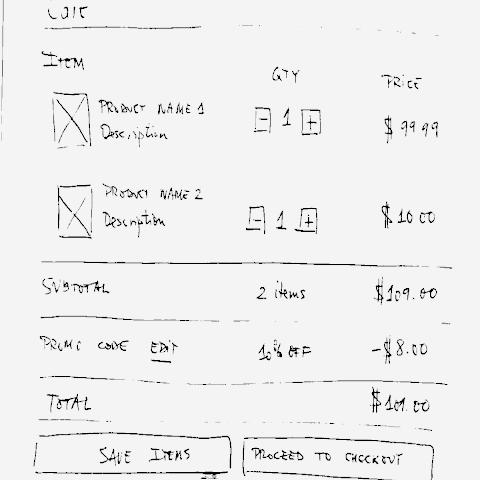 Item
QTY PRICE
PRODUCT NAME 1
Description
- 1 +
$ 99 99
PRODUCT NAME 2
Description
- 1 +
$ 10 00
SUBTOTAL 2 items $109.00
PROMO CODE EDIT 10% OFF -$8.00
TOTAL $101.00
SAVE ITEMS PROCEED TO CHECKOUT